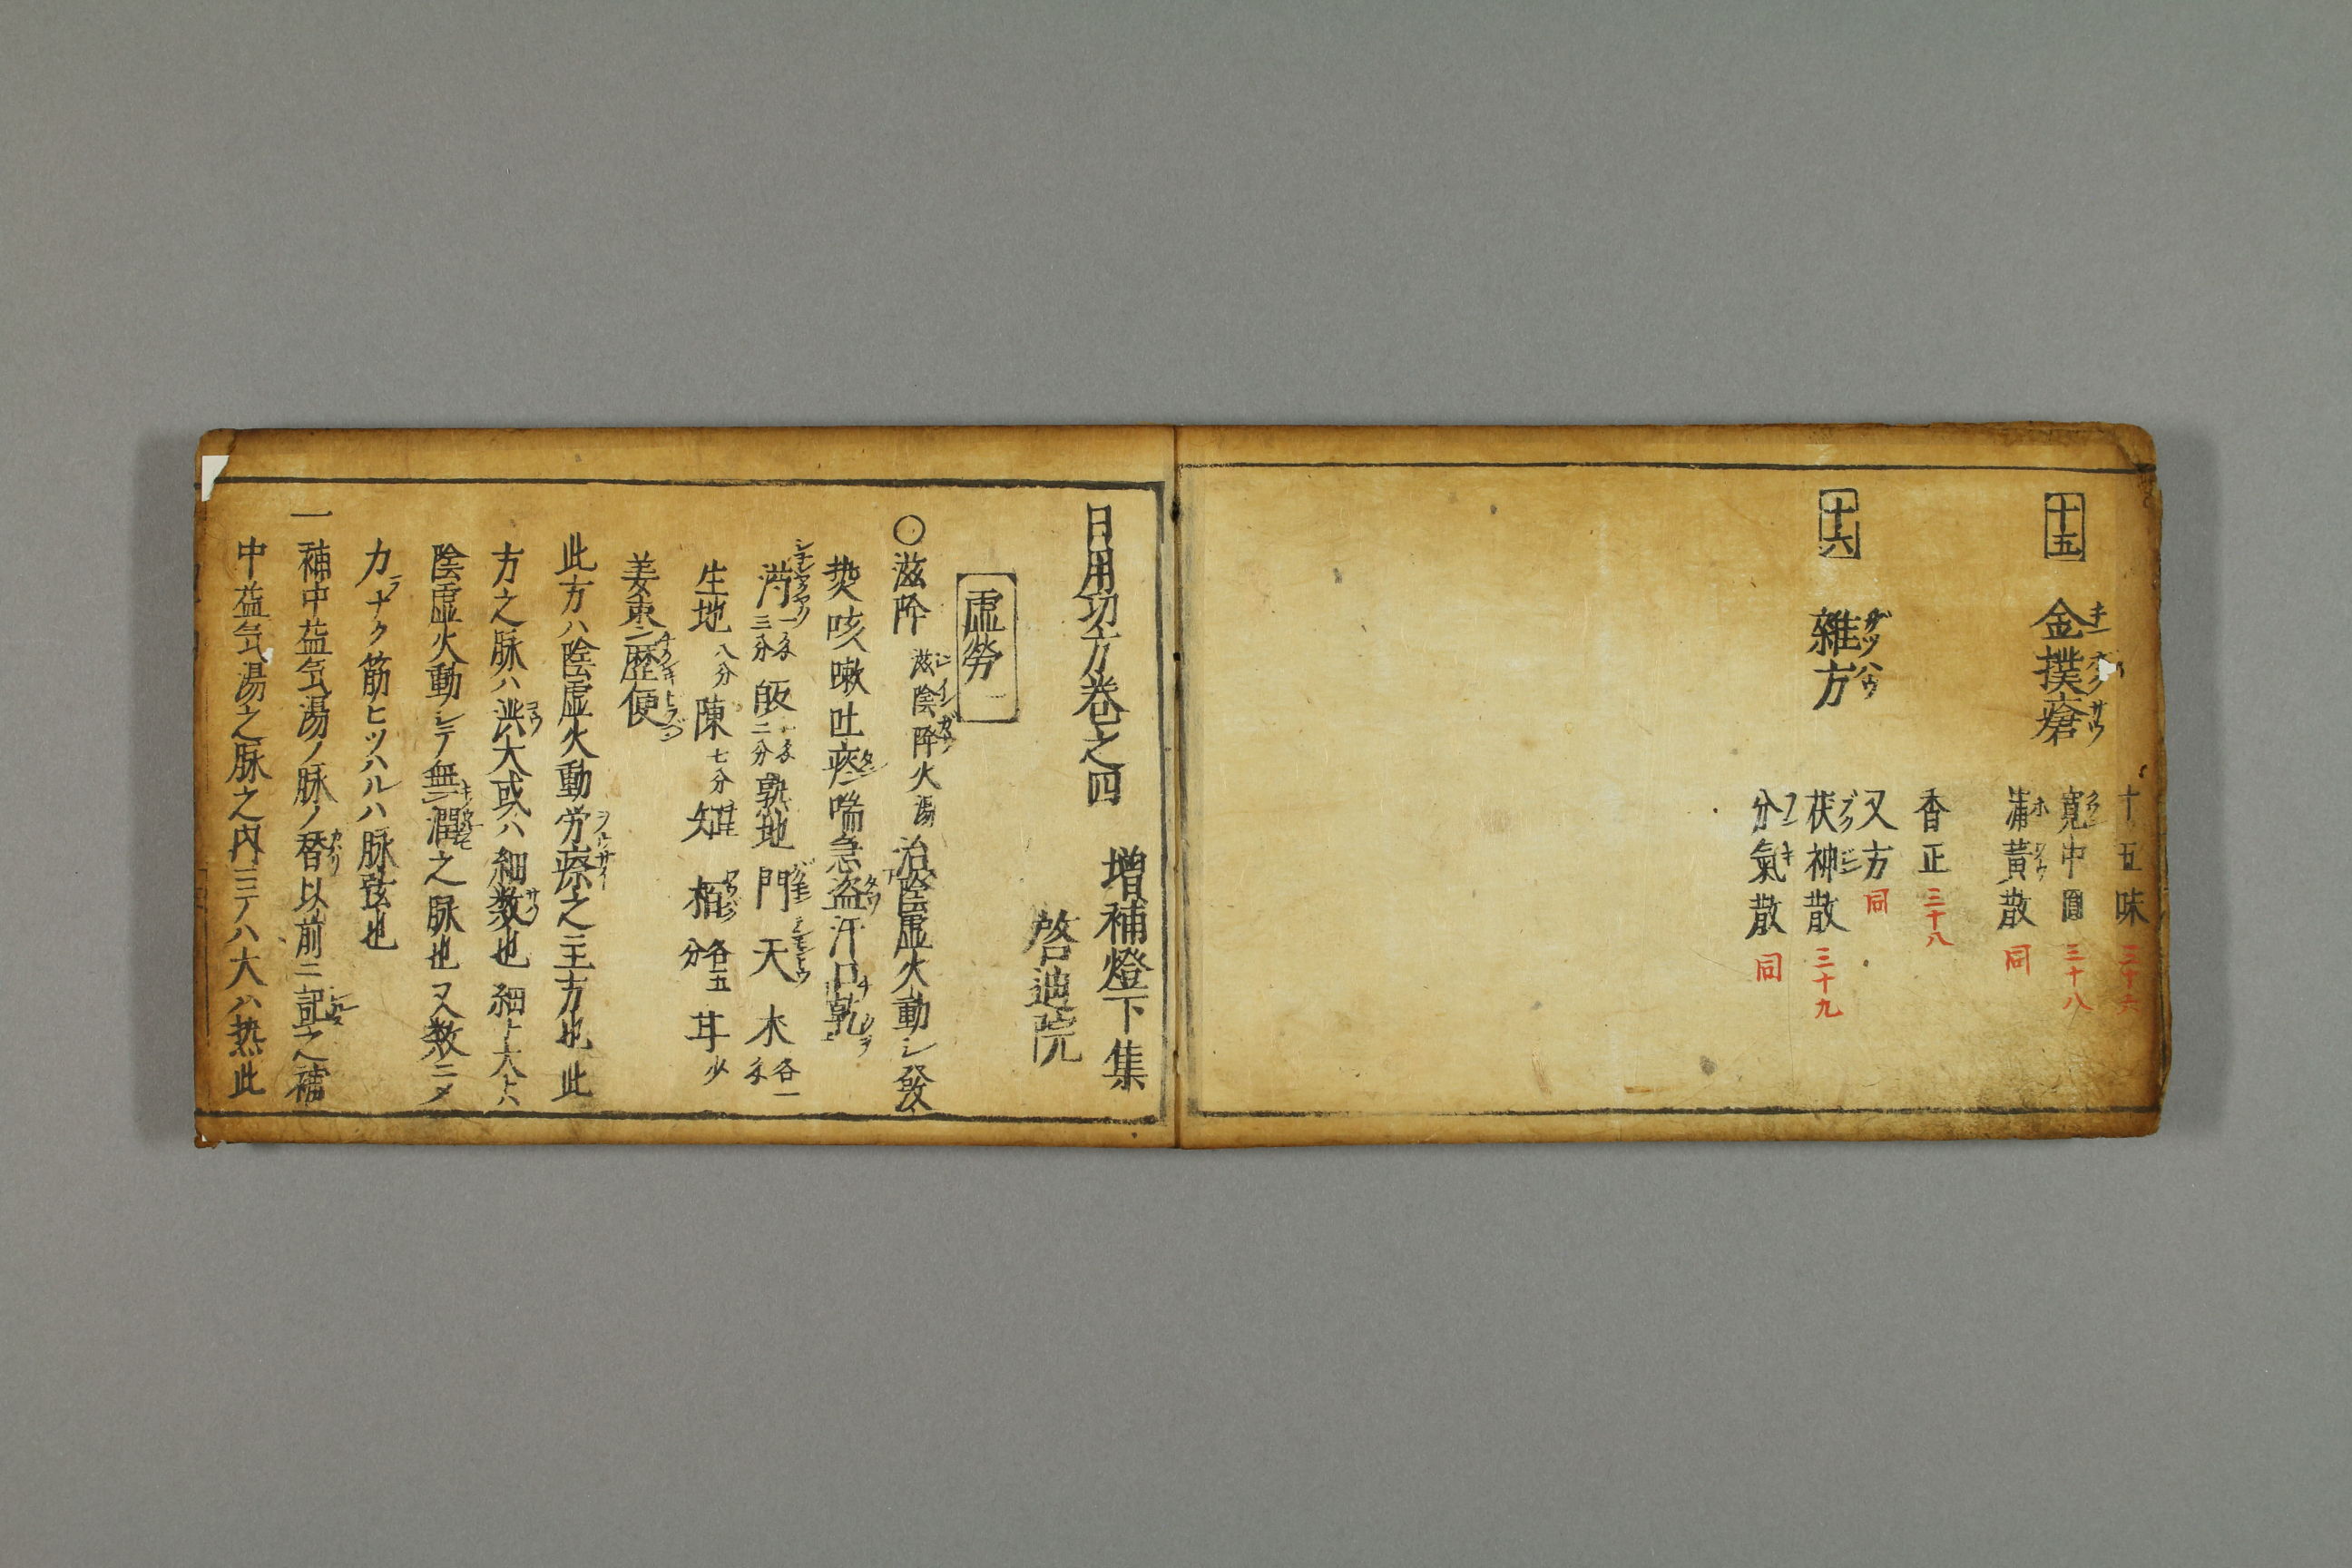 十五味 三十六
十五 金撲瘡
寛中圓 三十八
蒲黄散 同
香正 三十八
十六 雜方
又方 同
茯神散 三十九
分氣散 同
日用切方巻之四 増補燈下集
啓迪院
虚勞 一
〇滋降 滋陰降火湯 治陰虚火動シ發
熱咳嗽吐痰喘急盗汗口乾
芍一匁三分 皈一匁二分 熟地 門 天 木各一匁
生地八分 陳七分 知 栢各五分 耳少
姜棗ニ歴便
此方ハ陰虚火動労療之主方也此
方之脉ハ洪大或ハ細数也細ト大トハ
陰虚火動シテ無潤之脉也又数ニメ
力ナク筋ヒツハルハ脉弦也
一補中益気湯ノ脉ノ替以前ニ記之補
中益気湯之脉之内ニテハ大ハ热此